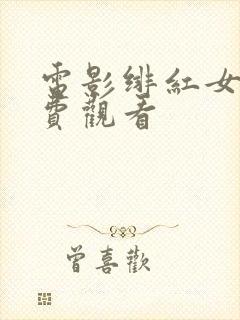 電影緋紅女
費觀看
曾喜歡